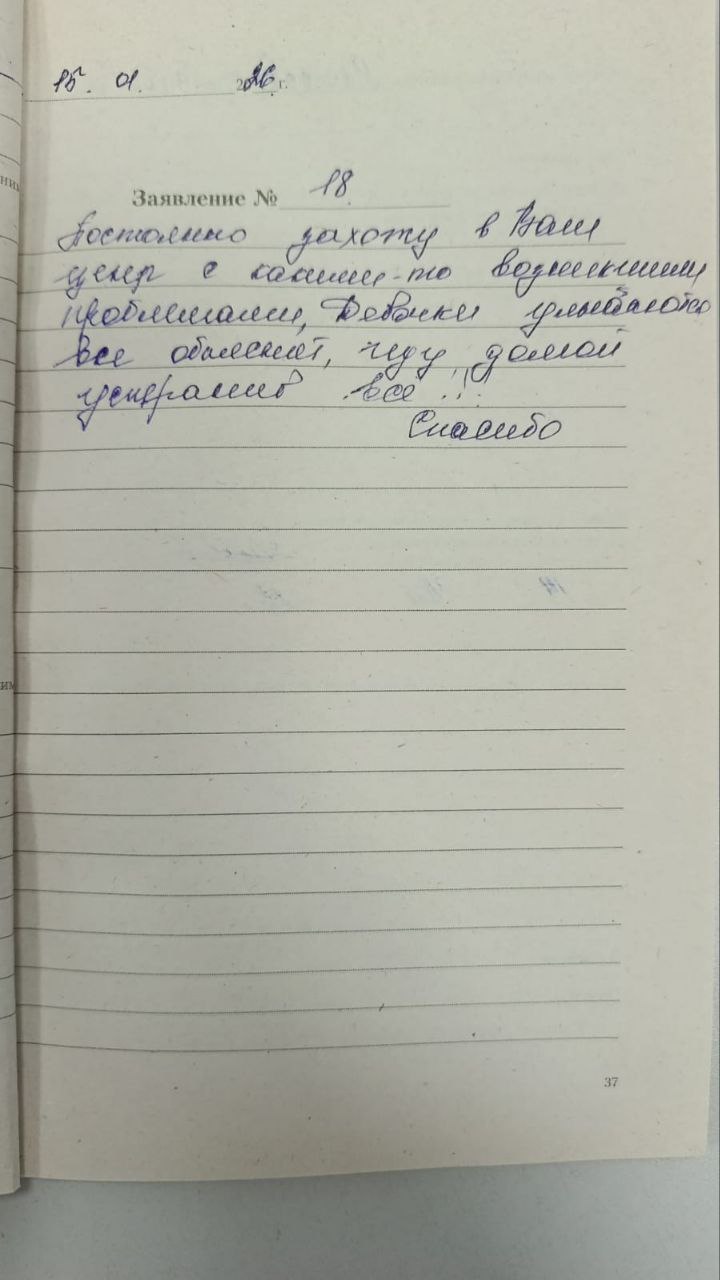 15. 01. 2026 г.
Заявление № 18.
Постоянно захожу в Ваш
ценр с какими-то возникшими
проблемами, Девочки улыбаются
все обьяснят, иду домой
устранив все !!!
Спасибо
37